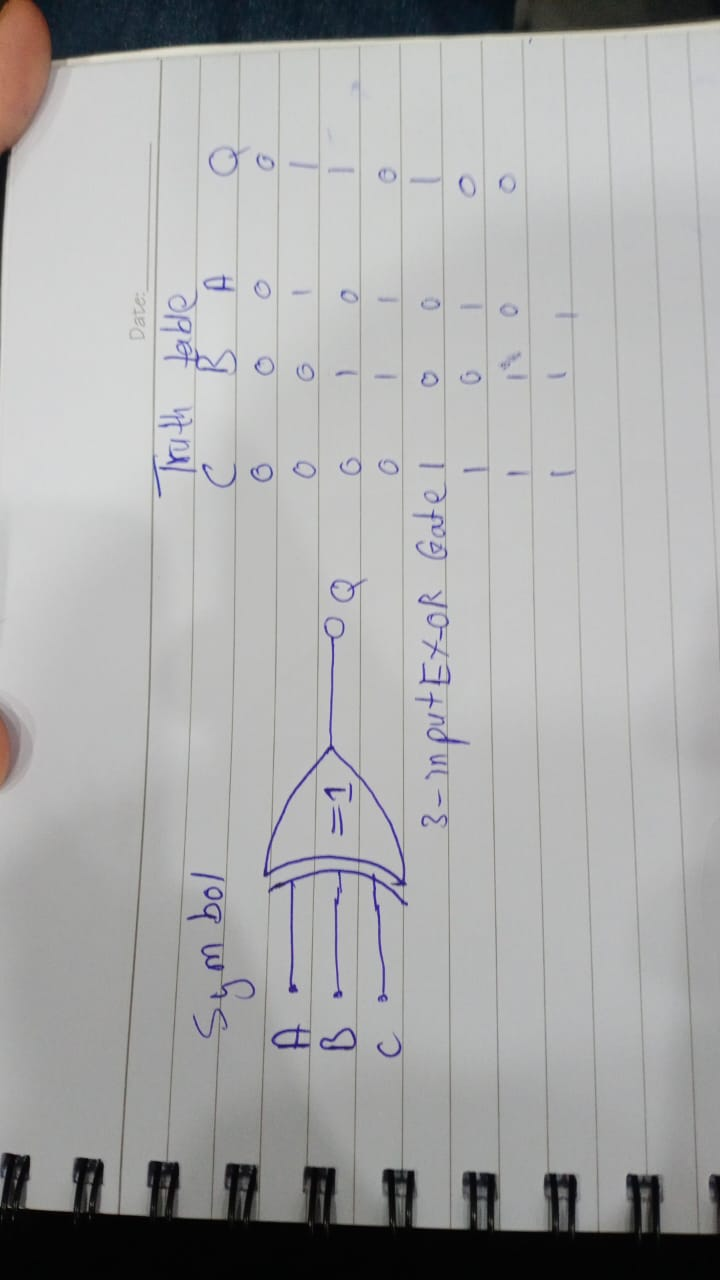 Date:
Symbol
A
B
C
=1
Q
3-input EX-OR Gate
Truth table
C B A Q
0 0 0 0
0 0 1 1
0 1 0 1
0 1 1 0
1 0 0 1
1 0 1 0
1 1 0 0
1 1 1